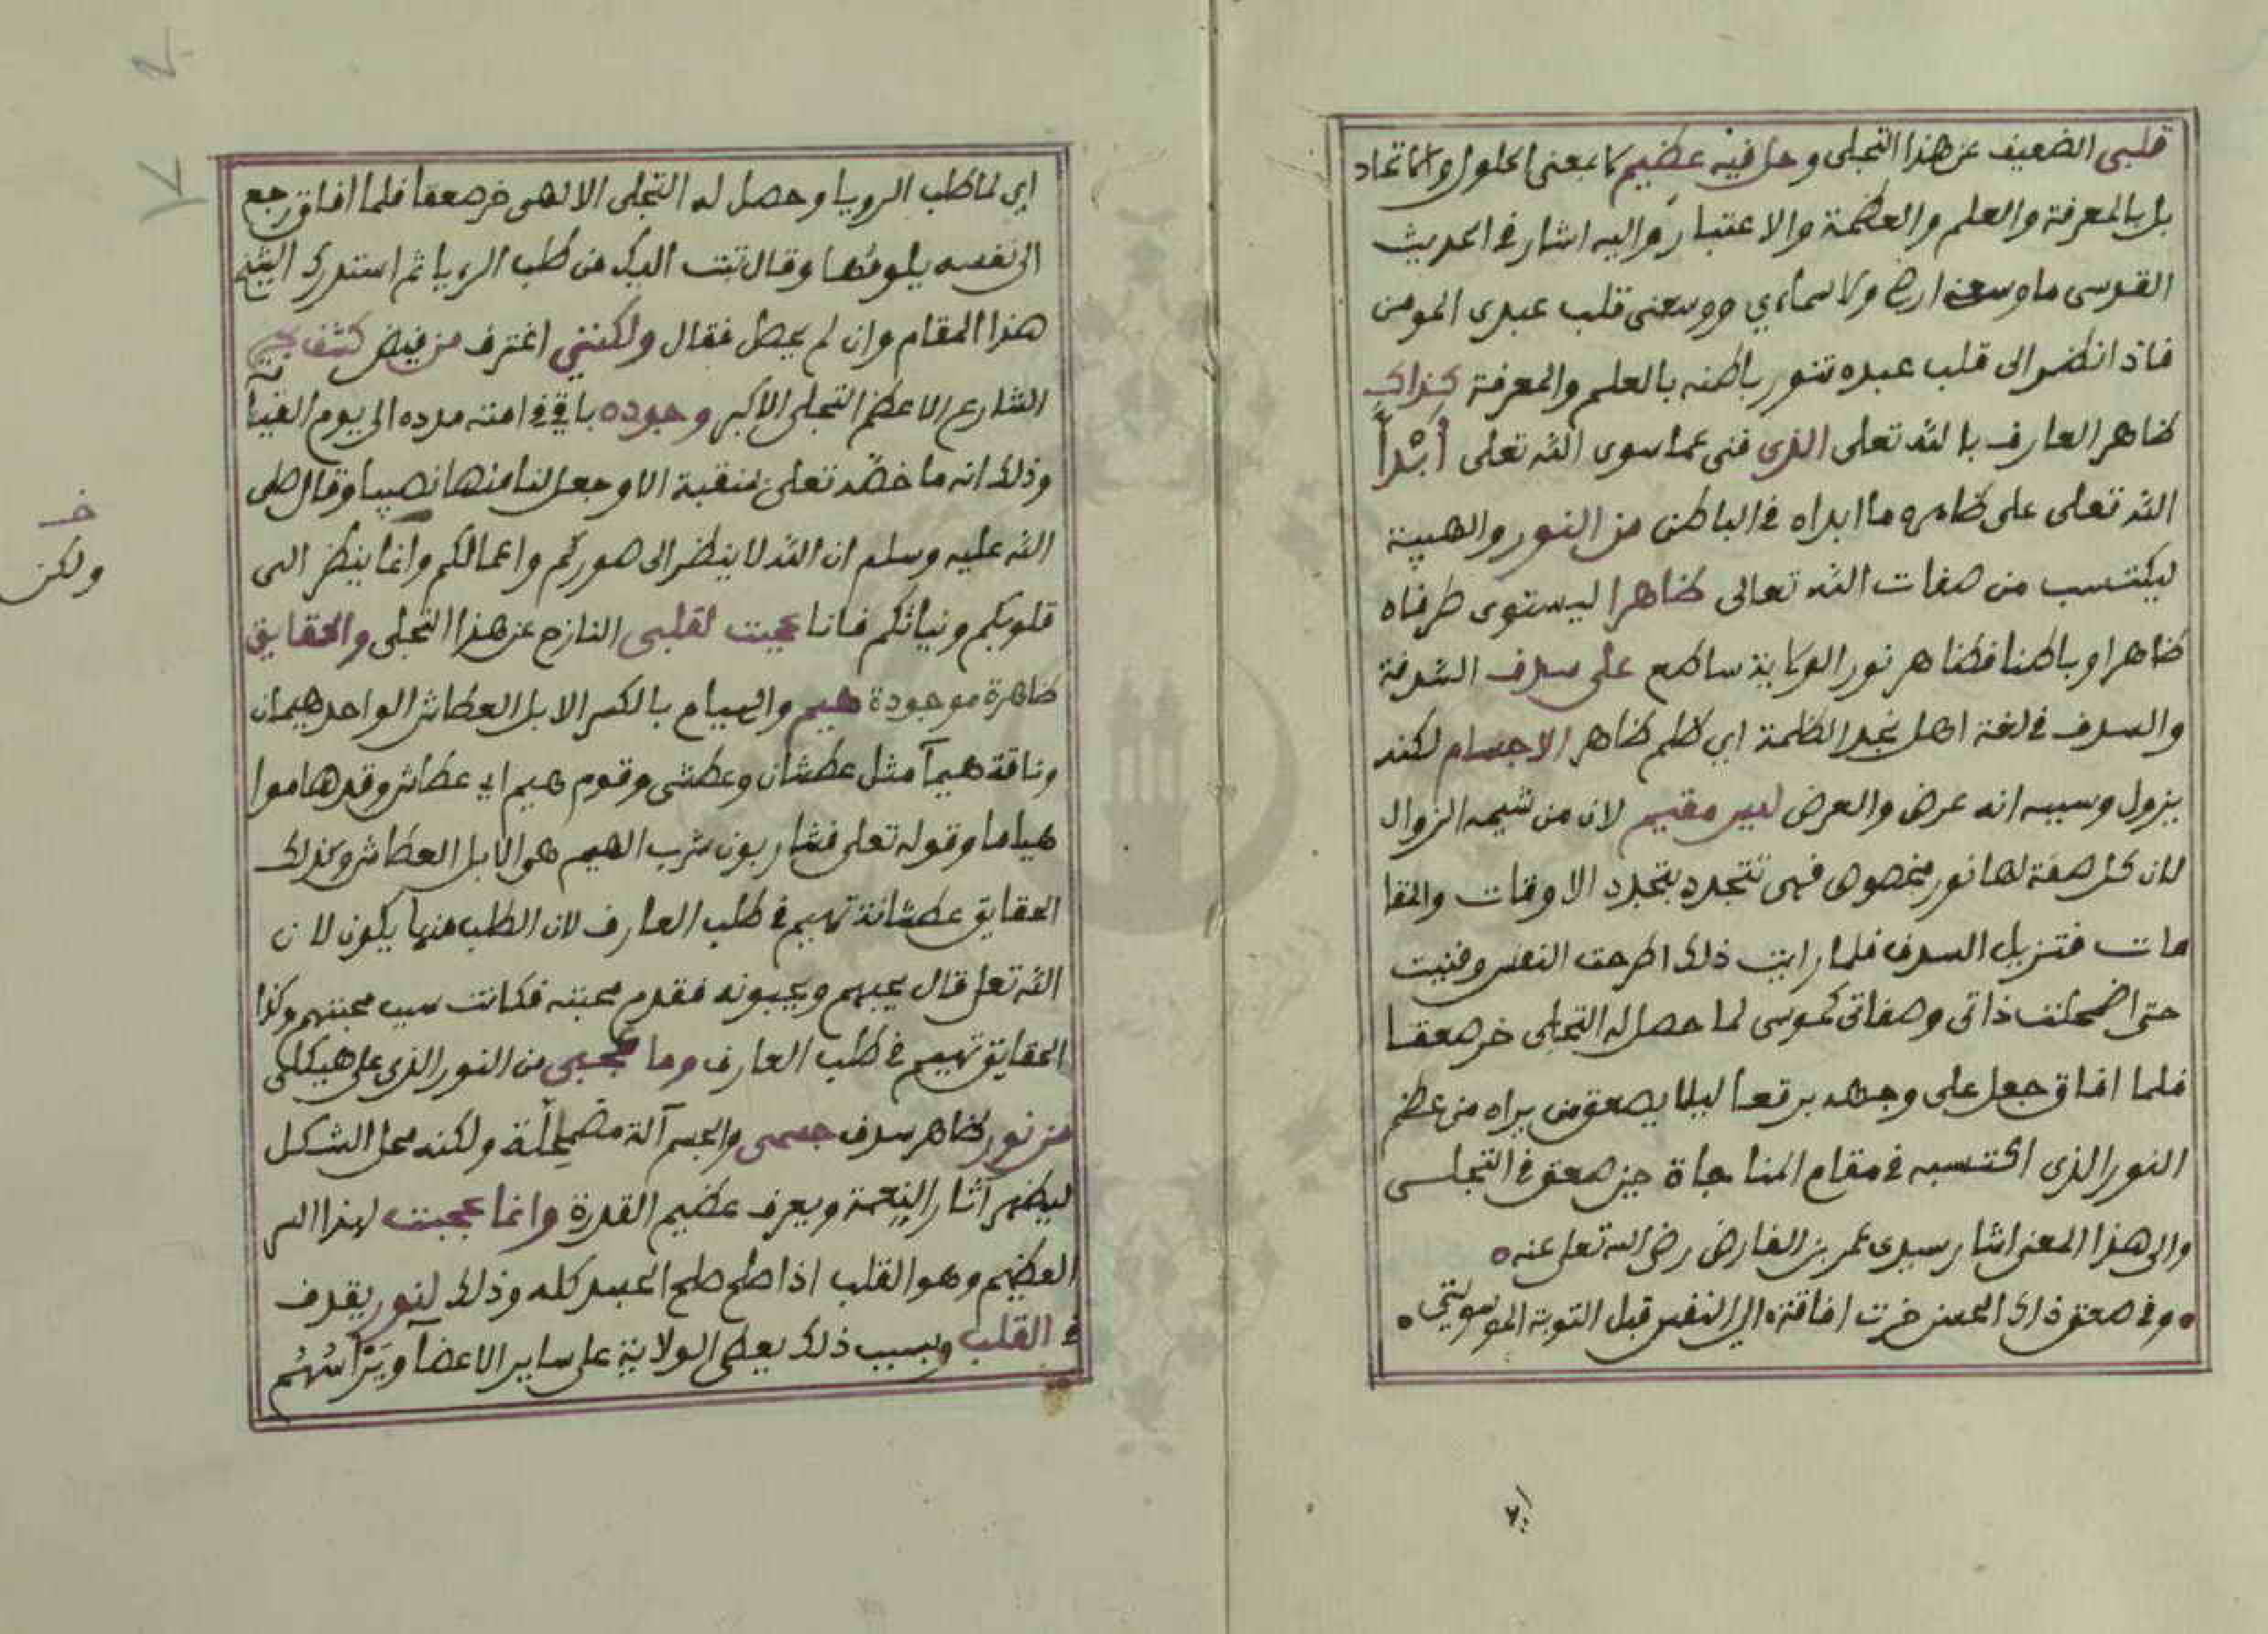 قلبى الضعيف عن هذا التجلى وحل فيه عظيم لا بمعنى الحلول والاتحاد
بل بالمعرفة والعلم والعظمة والاعتبار واليه اشار فى الحديث
القدسى ما وسعنى ارضى ولا سمائى ووسعنى قلب عبدى المومن
فاذا نظر الى قلب عبده تنور باطنه بالعلم والمعرفة كذاك
ظاهر العارف بالله تعلى الذى فنى عما سوى الله تعلى ابدا
الله تعلى على ظاهره ما ابداه فى الباطن من النور والهيبة
ليكتسب من صفات الله تعالى ظاهرا ليستوى طرفاه
ظاهرا وباطنا فظاهر نور الولاية ساطع على سدف السدفة
والسدف فى لغة اهل نجد الظلمة اى ظلم ظاهر الاجسام لكنه
يزول وسببه انه عرض والعرض ليس مقيم لان من شيمه الزوال
لان كل صفة لها نور مخصوص فهى تتجدد بتجدد الاوقات والمقا
مات فتزيل السدف فلما رايت ذلك اطرحت النفس وفنيت
حتى اضمحلت ذاتى وصفاتى كموسى لما حصل له التجلى خر صعقا
فلما افاق جعل على وجهه برقعا ليلا يصعق من يراه من عظم
النور الذى اكتسبه فى مقام المناجاة حين صعق فى التجلى
والى هذا المعنى اشار سيدى عمر بن الفارض رضى الله تعلى عنه
وفى صعق ذاك الحسن خرت افاقته الى النفس قبل التوبة الموسويتى
اى لما طلب الرويا وحصل له التجلى الالهى خر صعقا فلما افاق رجع
الى نفسه يلومها وقال تبت اليك من طلب الرويا ثم استدرك الشيخ
هذا المقام وان لم يحصل فقال ولكننى اغترف من فيض كشف
الشارع الاعظم التجلى الاكبر وجوده باق فى امته مدده الى يوم القيا
وذلك انه ما خصه تعلى بمنقبة الا وجعل لنا منها نصيبا وقال صلى
الله عليه وسلم ان الله لا ينظر الى صوركم واعمالكم وانما ينظر الى
قلوبكم ونياتكم فانا عجبت لقلبى النازح عن هذا التجلى والحقايق
ظاهرة موجودة هيم والهيام بالكسر الابل العطاش الواحد هيمان
وناقة هيمآ مثل عطشان وعطشى وقوم هيم اى عطاش وقد هاموا
هياما وقوله تعلى فشاربون شرب الهيم هو الابل العطاش وكذلك
الحقايق عطشانة تهيم فى طلب العارف لان الطلب منها يكون لان
الله تعلى قال يحبهم ويحبونه فقدم محبته فكانت سبب محبتهم وكذا
الحقايق تهيم فى طلب العارف وما عجبى من النور الذى على هيكلى
من نور ظاهر سدف جسمى والجسم آلة مضمحلة ولكنه محل الشكل
ليظهر آثار النعمة ويعرف عظيم القدرة وانما عجبت لهذا السر
العظيم وهو القلب اذا صلح صلح الجسد كله وذلك لنور يقذف
فى القلب وبسبب ذلك يعطى الولاية على ساير الاعضآ ويرآسهم
خـ
ولكن